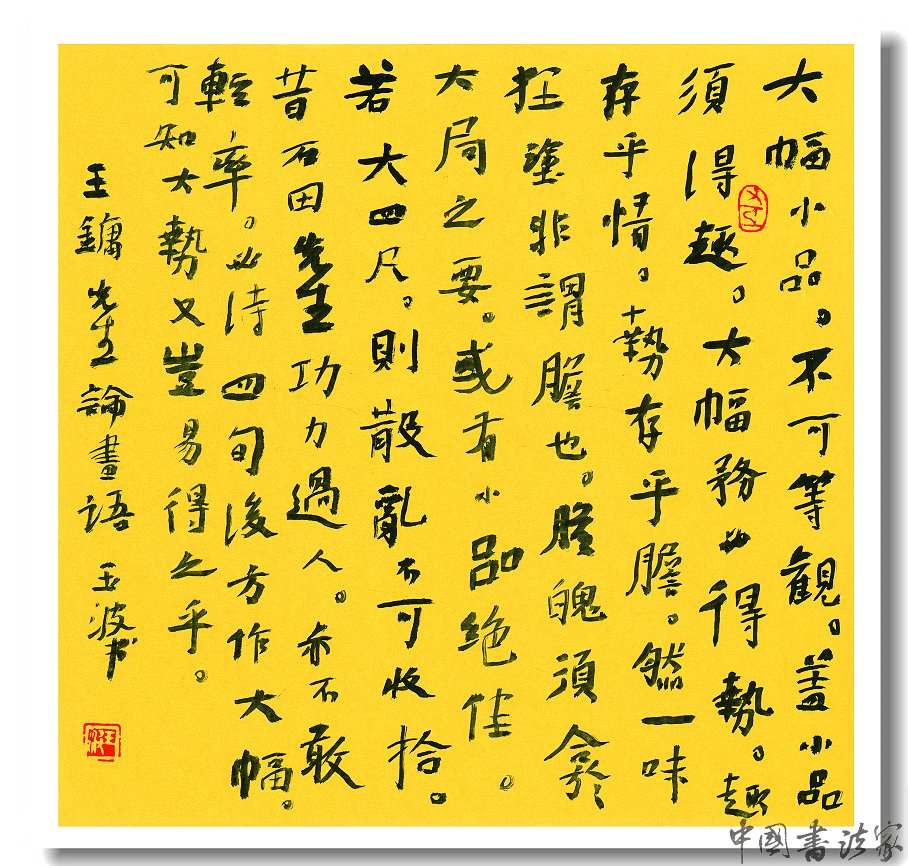 大幅小品。不可等觀。蓋小品
須得趣。大幅務必得勢。趣
存乎情。勢存乎膽。然一味
狂塗非謂膽也。膽魄須
大局之要。或有小品絕佳。
若大四尺。則散亂不可收拾。
昔石田先生功力過人。亦不敢
輕率。必待四旬後方作大幅。
可知大勢又豈易得之乎。
王鏞先生論畫語 玉波书
中國書法家